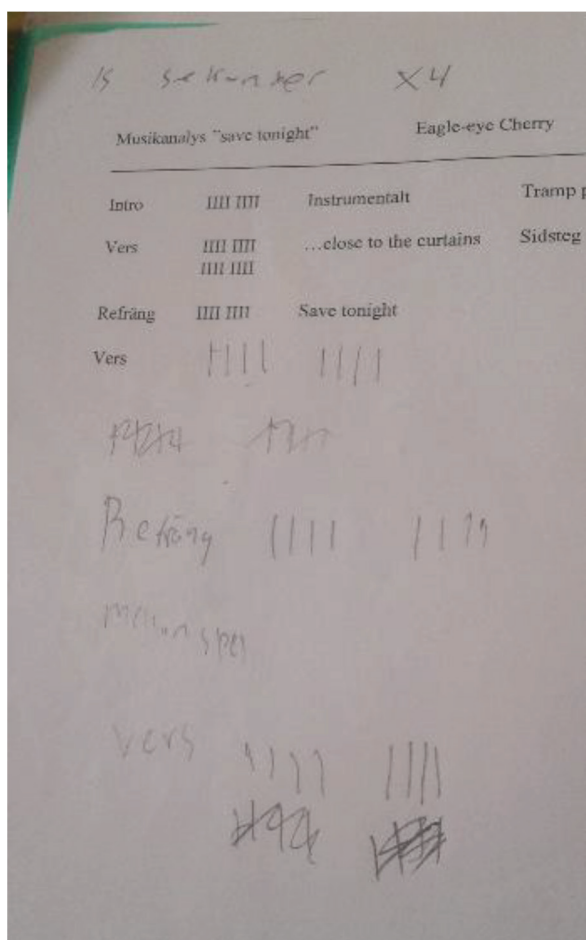 15 sekunder X4
Musikanalys "save tonight" Eagle-eye Cherry
Intro IIII IIII Instrumentalt Tramp p
Vers IIII IIII ...close to the curtains Sidsteg
IIII IIII
Refräng IIII IIII Save tonight
Vers IIII IIII
Refräng IIII IIII
mellanspel
vers IIII IIII